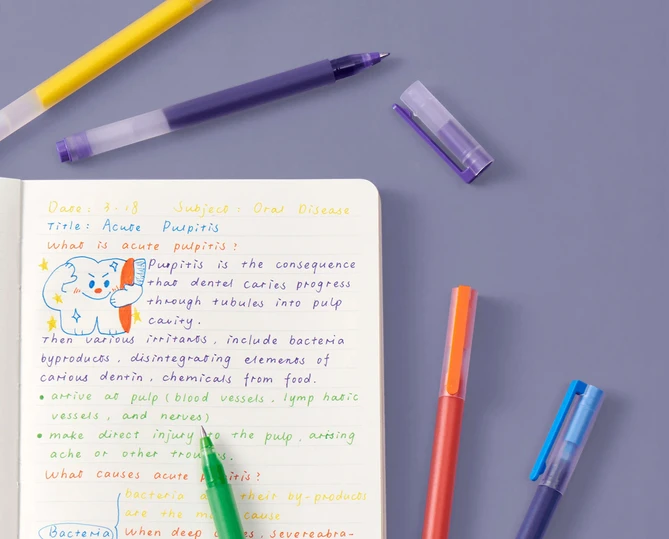 Date: 3.18 Subject: Oral Disease
Title: Acute Pulpitis
What is acute pulpitis?
Pulpitis is the consequence
that dentel caries progress
through tubules into pulp
cavity.
Then various irritants, include bacteria
byproducts, disintegrating elements of
carious dentin, chemicals from food.
• arrive at pulp (blood vessels, lymphatic
vessels, and nerves)
• make direct injury to the pulp, arising
ache or other
What causes acute
bacteria their by-products
are the cause
Bacteria When deep severe abra-